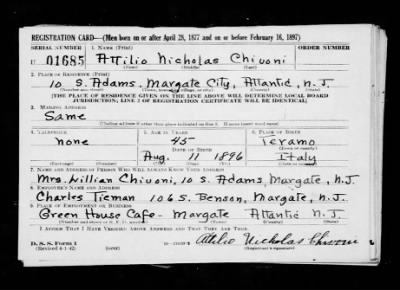 REGISTRATION CARD—(Men born on or after April 28, 1877 and on or before February 16, 1897)
SERIAL NUMBER 1. NAME (Print) ORDER NUMBER
U 01685 Attilio Nicholas Chivoni
(First) (Middle) (Last)
2. PLACE OF RESIDENCE (Print)
10 S. Adams, Margate City, Atlantic, N.J.
(Number and street) (Town, township, village, or city) (County) (State)
[THE PLACE OF RESIDENCE GIVEN ON THE LINE ABOVE WILL DETERMINE LOCAL BOARD
JURISDICTION; LINE 2 OF REGISTRATION CERTIFICATE WILL BE IDENTICAL]
3. MAILING ADDRESS
Same
(Mailing address if other than place indicated on line 2. If same insert word same)
4. TELEPHONE 5. AGE IN YEARS 6. PLACE OF BIRTH
none 45 Teramo
DATE OF BIRTH (Town or county)
Aug. 11 1896 Italy
(Exchange) (Number) (Mo.) (Day) (Yr.) (State or country)
7. NAME AND ADDRESS OF PERSON WHO WILL ALWAYS KNOW YOUR ADDRESS
Mrs. Lillian Chivoni, 10 S. Adams, Margate, N.J.
8. EMPLOYER'S NAME AND ADDRESS
Charles Tieman 106 S. Benson, Margate, N.J.
9. PLACE OF EMPLOYMENT OR BUSINESS
Green House Cafe - Margate Atlantic N.J.
(Number and street or R. F. D. number) (Town) (County) (State)
I AFFIRM THAT I HAVE VERIFIED ABOVE ANSWERS AND THAT THEY ARE TRUE.
D. S. S. Form 1
(Revised 4-1-42) (over) Attilio Nicholas Chivoni
(Registrant's signature)